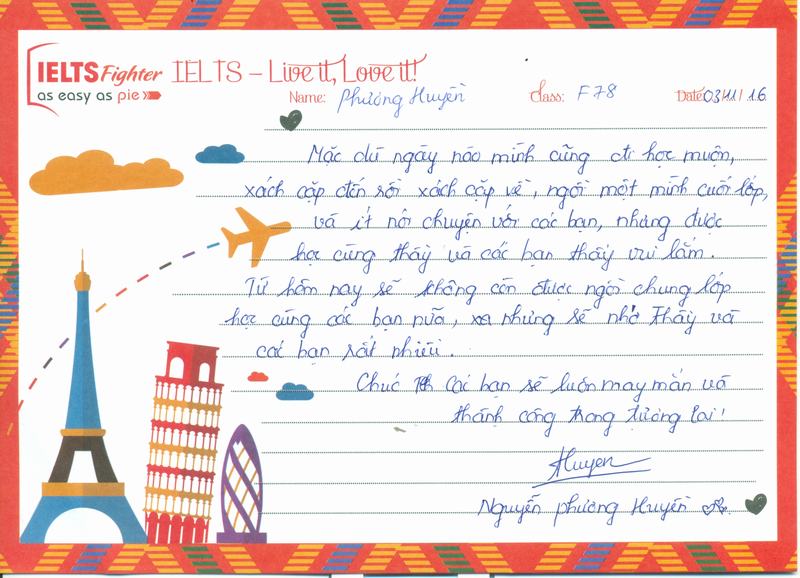 IELTS Fighter
as easy as pie
IELTS – Live it, Love it!
Name: Phương Huyền Class: F78 Date: 03/11/16
Mặc dù ngày nào mình cũng đi học muộn,
xách cặp đến rồi xách cặp về, ngồi một mình cuối lớp,
và ít nói chuyện với các bạn, nhưng được
học cùng thầy và các bạn thấy vui lắm.
Từ hôm nay sẽ không còn được ngồi chung lớp
học cùng các bạn nữa, nhưng sẽ nhớ Thầy và
các bạn rất nhiều.
Chúc các bạn sẽ luôn may mắn và
thành công trong tương lai!
Huyen
Nguyễn Phương Huyền